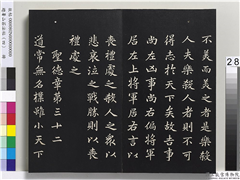 不美而美之者是樂殺
人夫樂殺人者則不可
得志於天下矣故吉事
尚左凶事尚右偏將軍
居左上將軍居右言以
喪禮處之殺人之衆以
悲哀泣之戰勝則以喪
禮處之
聖德章第三十二
道常無名樸雖小天下
28